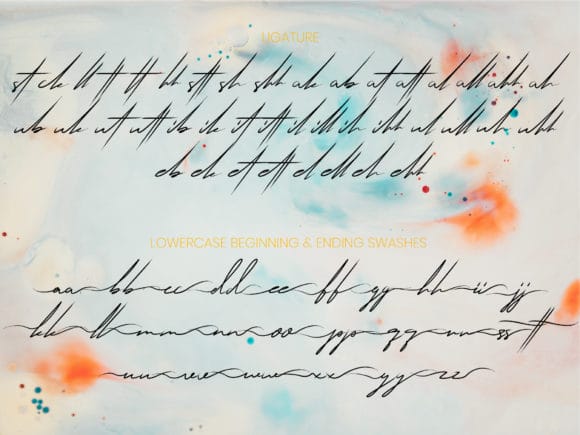 LIGATURE
st ck ll tt hh stt sh shh ak ab at att al all ahh ah
ub uk ut utt ib ik it itt il ill ih ihh ul ull uh uhh
eb ek et ett el ell eh ehh
LOWERCASE BEGINNING & ENDING SWASHES
aa bb cc dd ee ff gg hh ii jj
kk ll mm nn oo pp qq rr ss tt
uu vv ww xx yy zz